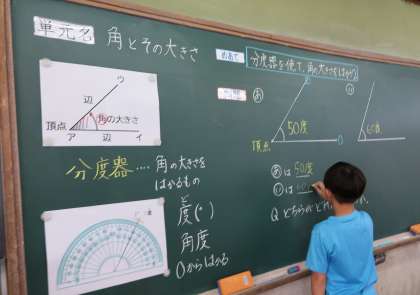 単元名 角とその大きさ
ウ
辺
角の大きさ
頂点
ア 辺 イ
分度器‥‥角の大きさを
はかるもの
ど
度(°)
角度
0からはかる
めあて 分度器を使って、角の大きさをはかろう
あ
50度
頂点
い
60度
あは50度
いは60
Q どちらがどれ